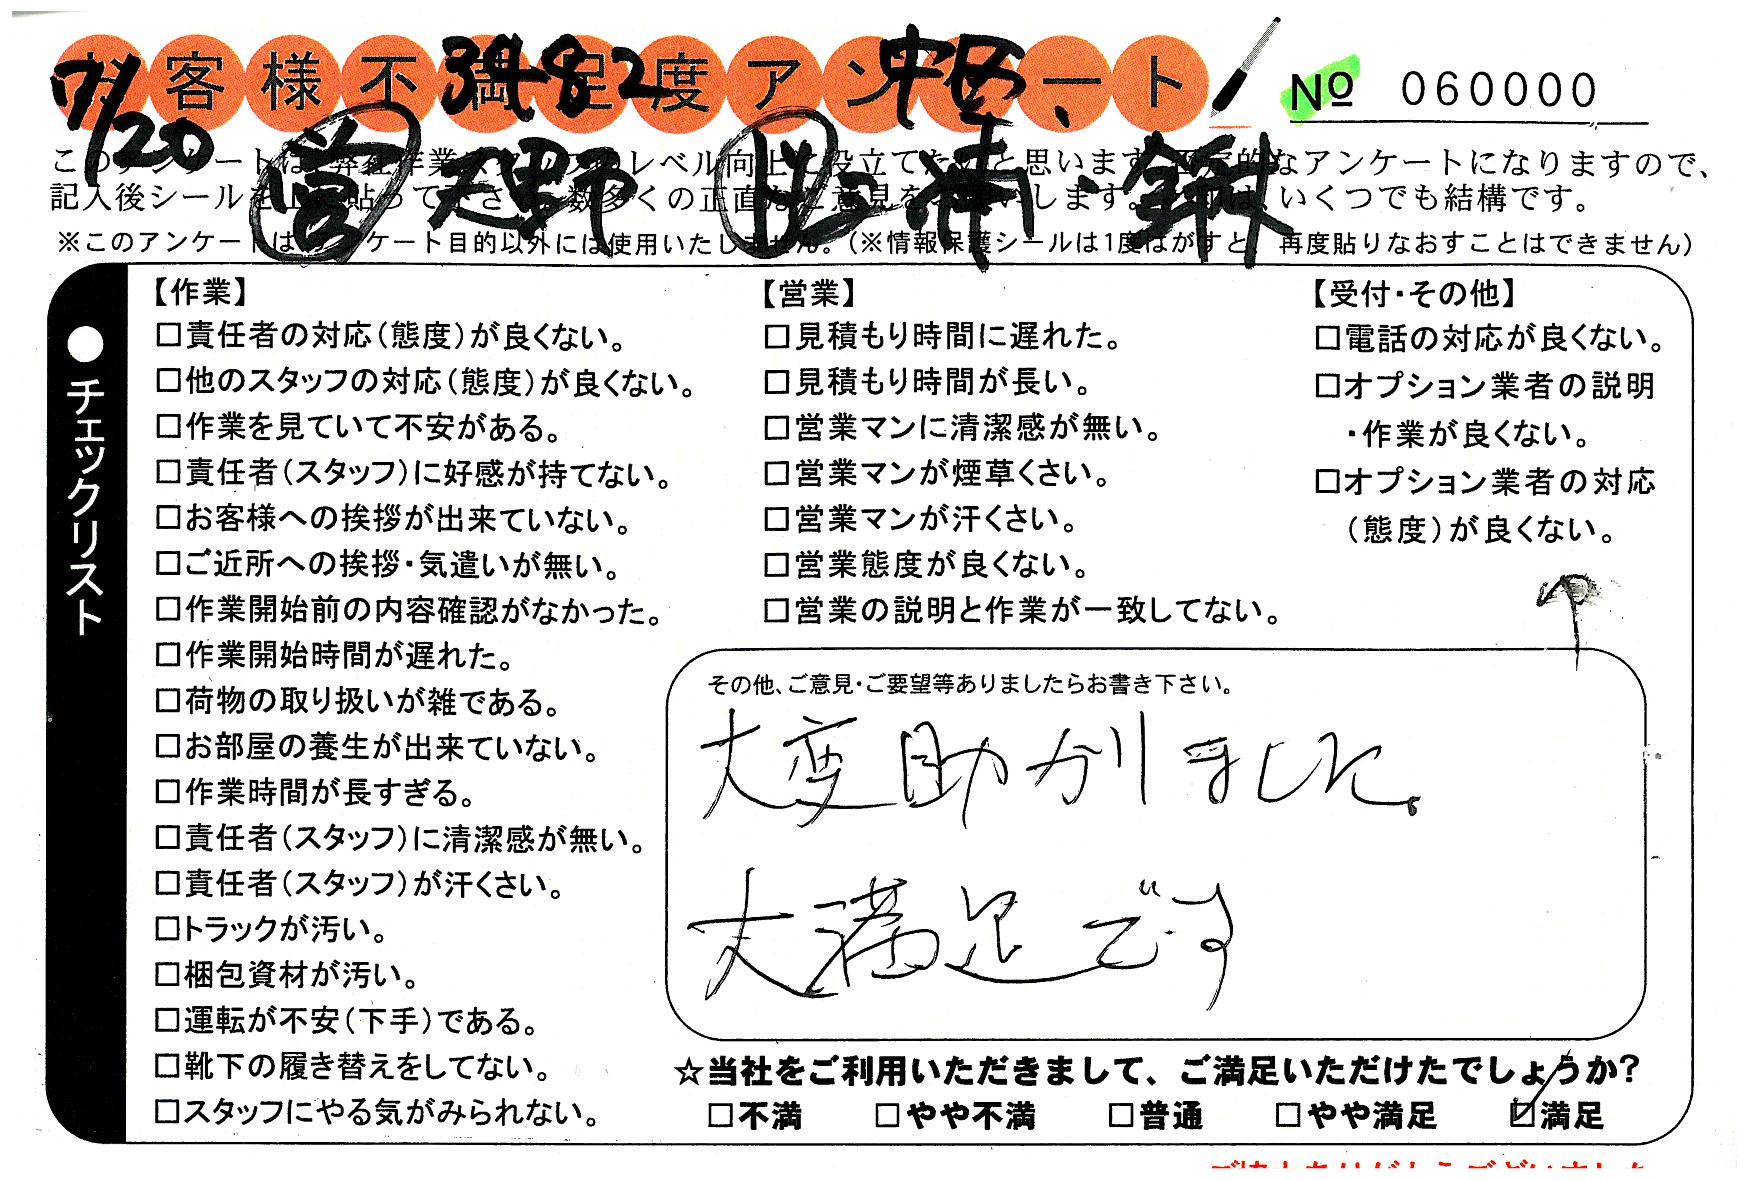 お客様不満足度アンケート
№ 060000
7/20 3482 中西、
菅 天野 田 三浦・鍬
このアンケートは、弊社作業スタッフのレベル向上に役立てたいと思います。否定的なアンケートになりますので、
記入後シールを上に貼って下さい。数多くの正直なご意見をお願いします。 は、いくつでも結構です。
※このアンケートはアンケート目的以外には使用いたしません。（※情報保護シールは1度はがすと、再度貼りなおすことはできません）
●チェックリスト
【作業】
□責任者の対応（態度）が良くない。
□他のスタッフの対応（態度）が良くない。
□作業を見ていて不安がある。
□責任者（スタッフ）に好感が持てない。
□お客様への挨拶が出来ていない。
□ご近所への挨拶・気遣いが無い。
□作業開始前の内容確認がなかった。
□作業開始時間が遅れた。
□荷物の取り扱いが雑である。
□お部屋の養生が出来ていない。
□作業時間が長すぎる。
□責任者（スタッフ）に清潔感が無い。
□責任者（スタッフ）が汗くさい。
□トラックが汚い。
□梱包資材が汚い。
□運転が不安（下手）である。
□靴下の履き替えをしてない。
□スタッフにやる気がみられない。
【営業】
□見積もり時間に遅れた。
□見積もり時間が長い。
□営業マンに清潔感が無い。
□営業マンが煙草くさい。
□営業マンが汗くさい。
□営業態度が良くない。
□営業の説明と作業が一致してない。
【受付・その他】
□電話の対応が良くない。
□オプション業者の説明
・作業が良くない。
□オプション業者の対応
（態度）が良くない。
その他、ご意見・ご要望等ありましたらお書き下さい。
大変助かりました。
大満足です
☆当社をご利用いただきまして、ご満足いただけたでしょうか?
□不満 □やや不満 □普通 □やや満足 ☑満足
ご協力ありがとうございました